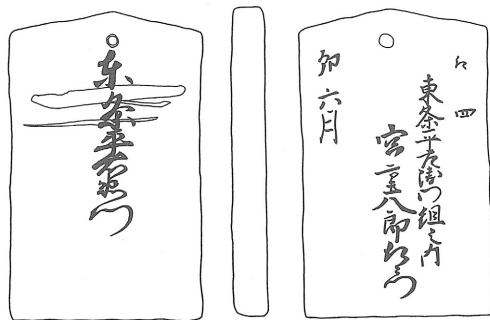 東条平左衛門
四
東条平左衛門組之内
宮重八郎
卯六月